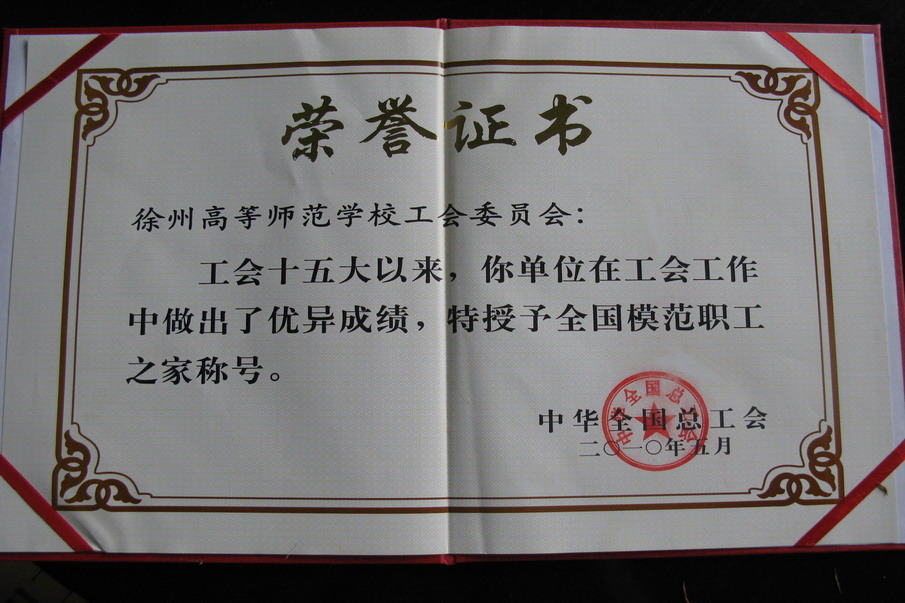 荣誉证书
徐州高等师范学校工会委员会：
工会十五大以来，你单位在工会工作
中做出了优异成绩，特授予全国模范职工
之家称号。
中华全国总工会
二〇一〇年五月
中华全国总工会